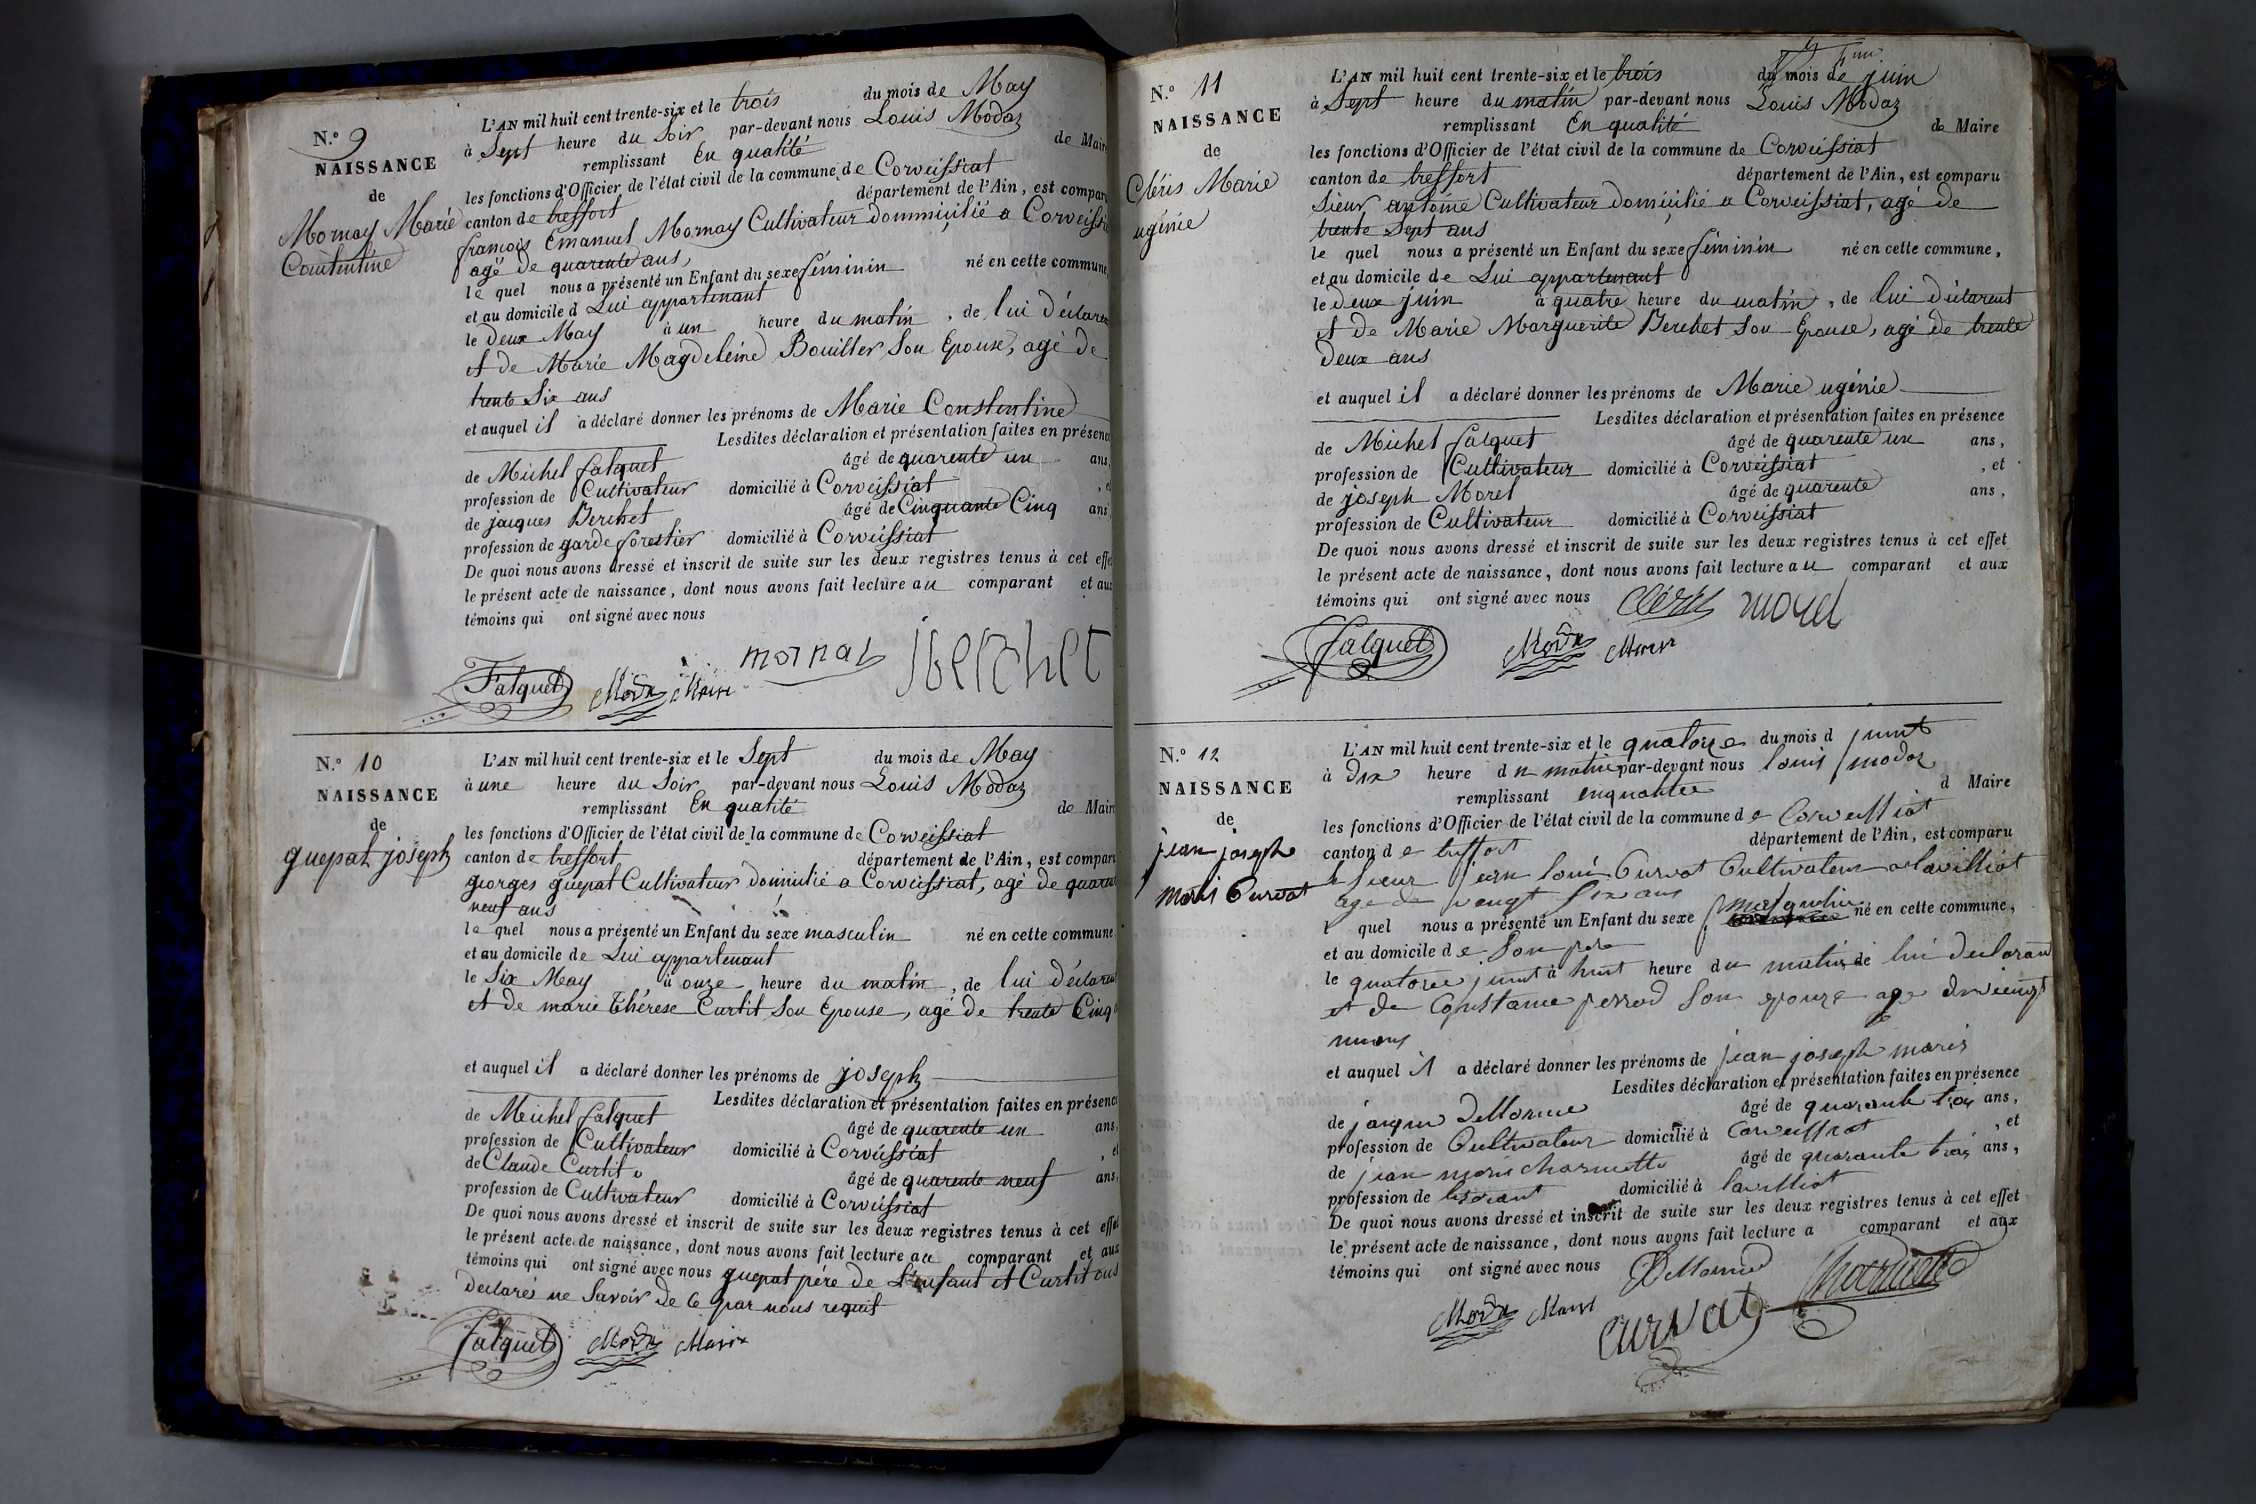 N.º 9
NAISSANCE
de
Mornay Marie
Constentine
L'AN mil huit cent trente-six et le trois du mois de May
à Sept heure du Soir par-devant nous Louis Modas
remplissant En qualité de Maire
les fonctions d'Officier de l'état civil de la commune de Corveissiat
canton de treffort département de l'Ain, est comparu
françois Emanuel Mornay Cultivateur dommicilié a Corveissia
agé de quarente ans,
le quel nous a présenté un Enfant du sexe féminin né en cette commune,
et au domicile d Lui appartenant
le Deux May à un heure du matin, de lui déclaren
et de Marie Magdeleine Bouiller Son Epouse, agé de
trente Six ans
et auquel il a déclaré donner les prénoms de Marie Constentine
Lesdites déclaration et présentation faites en présence
de Michel falquet âgé de quarente un ans,
profession de Cultivateur domicilié à Corveissiat, et
de jacques Berchet âgé de Cinquante Cinq ans
profession de garde forestier domicilié à Corveissiat
De quoi nous avons dressé et inscrit de suite sur les deux registres tenus à cet effet
le présent acte de naissance, dont nous avons fait lecture au comparant et aux
témoins qui ont signé avec nous
mornay jberchet
Falquet Modas Maire
N.º 10
NAISSANCE
de
guepat joseph
L'AN mil huit cent trente-six et le Sept du mois de May
à une heure du Soir par-devant nous Louis Modas
remplissant En qualité de Maire
les fonctions d'Officier de l'état civil de la commune de Corveissiat
canton de treffort département de l'Ain, est comparu
georges guepat Cultivateur domicilié a Corveissiat, agé de quaren
neuf ans
le quel nous a présenté un Enfant du sexe masculin né en cette commune
et au domicile de Lui appartenant
le Six May à onze heure du matin, de lui déclarent
et de marie Thérese Curtit Son Epouse, agé de trente Cinq
et auquel il a déclaré donner les prénoms de joseph
Lesdites déclaration et présentation faites en présence
de Michel falquet âgé de quarente un ans,
profession de Cultivateur domicilié à Corveissiat, et
de Claude Curtit âgé de quarente neuf ans,
profession de Cultivateur domicilié à Corveissiat
De quoi nous avons dressé et inscrit de suite sur les deux registres tenus à cet effet
le présent acte de naissance, dont nous avons fait lecture au comparant et aux
témoins qui ont signé avec nous guepat pére de L'enfant et Curtit ous
declarés ne Savoir de Ce par nous requit
Falquet Modas Maire
N.º 11
NAISSANCE
de
Cléris Marie
ugénie
L'AN mil huit cent trente-six et le trois du mois de juin
à Sept heure du matin par-devant nous Louis Modas
remplissant En qualité de Maire
les fonctions d'Officier de l'état civil de la commune de Corveissiat
canton de treffort département de l'Ain, est comparu
Sieur antoine Cultivateur domicilié a Corveissiat, agé de
trente Sept ans
le quel nous a présenté un Enfant du sexe féminin né en cette commune,
et au domicile de Lui appartenant
le Deux juin à quatre heure du matin, de lui déclarent
et de Marie Marguerite Berchet Son Epouse, agé de trente
Deux ans
et auquel il a déclaré donner les prénoms de Marie ugénie
Lesdites déclaration et présentation faites en présence
de Michel falquet âgé de quarente un ans,
profession de Cultivateur domicilié à Corveissiat, et
de joseph Morel âgé de quarente ans,
profession de Cultivateur domicilié à Corveissiat
De quoi nous avons dressé et inscrit de suite sur les deux registres tenus à cet effet
le présent acte de naissance, dont nous avons fait lecture au comparant et aux
témoins qui ont signé avec nous Cléris morel
Falquet Modas Maire
N.º 12
NAISSANCE
de
jean joseph
maris Curvat
L'AN mil huit cent trente-six et le quatorze du mois d juint
à dix heure du matin par-devant nous louis modas
remplissant enqualitée d Maire
les fonctions d'Officier de l'état civil de la commune de Corveissiat
canton de treffort département de l'Ain, est comparu
le Sieur jean loui Curvat Cultivateur a lavilliat
age de veingt Six ans
l quel nous a présenté un Enfant du sexe masqulin né en cette commune,
et au domicile de Son pere
le quatorze juint à huit heure du matin, de lui declarant
et de Constance perrod Son epouze age de vieingt
et auquel il a déclaré donner les prénoms de jean joseph maris
Lesdites déclaration et présentation faites en présence
de jaque Dellorme âgé de quarante trois ans,
profession de Cultivateur domicilié à Corveissiat, et
de jean marie charnette âgé de quarante trois ans,
profession de domicilié à lavilliat
De quoi nous avons dressé et inscrit de suite sur les deux registres tenus à cet effet
le présent acte de naissance, dont nous avons fait lecture a comparant et aux
témoins qui ont signé avec nous
Modas Maire Curvat